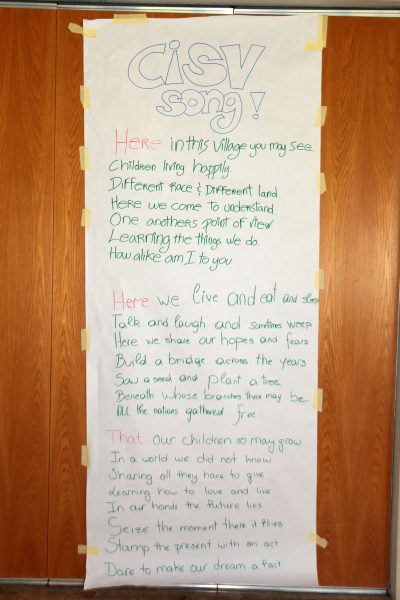 CISV
song!
Here in this Village you may see
Children living happily.
Different Race & Different land
Here we come to understand
One anothers point of view
Learning the things we do
How alike am I to you
Here we live and eat and sleep
Talk and laugh and sometimes weep
Here we share our hopes and fears
Build a bridge across the years
Sow a seed and plant a tree
Beneath whose branches there may be
All the nations gathered free
That our children so may grow
In a world we did not know
Sharing all they have to give
Learning how to love and live
In our hands the future lies
Seize the moment there it flies
Stamp the present with an act
Dare to make our dream a fact